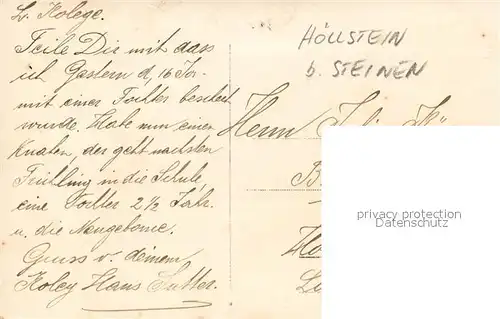 L. Kolege.
Teile Dir mit dass
ich Gestern d, 16 Jan.
mit einer Tochter beschert
wurde. Habe nun einen
Knaben, der geht nächsten
Frühling in die Schule,
eine Tochter 2 1/2 Jahr
u. die Neugeborne.
Gruss v. deinem
Koleg Hans Sutter.
HÖLLSTEIN
b. STEINEN
Herrn
privacy protection
Datenschutz